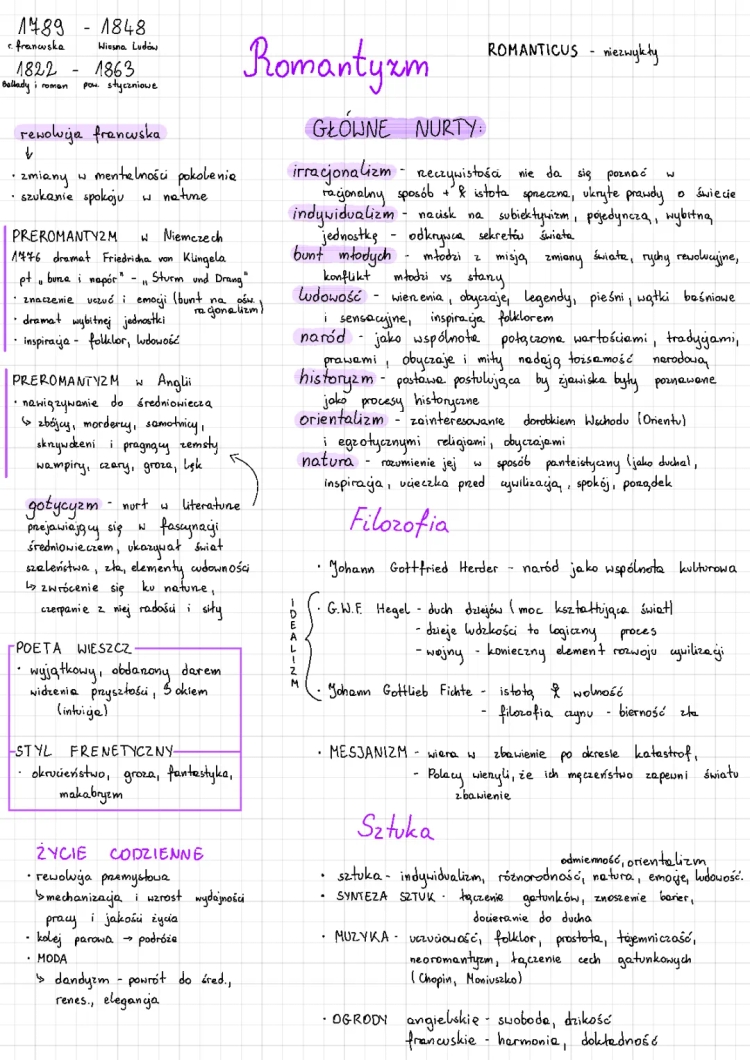 1789 - 1848
r. francuska Wiosna Ludów
1822 - 1863
Ballady i roman pow. styczniowe
Romantyzm
ROMANTICUS - niezwykły
rewolucja francuska
↓
· zmiany w mentalności pokolenia
· szukanie spokoju w naturze
PREROMANTYZM w Niemczech
1776 dramat Friedricha von Klingela
pt „burza i napór" - „Sturm und Drang"
· znaczenie uczuć i emocji (bunt na ośw.
racjonalizm)
· dramat wybitnej jednostki
· inspiracja - folklor, ludowość
PREROMANTYZM w Anglii
· nawiązywanie do średniowiecza
↳ zbójcy, mordercy, samotnicy,
skrzywdzeni i pragnący zemsty
wampiry, czary, groza, lęk
gotycyzm - nurt w literaturze
przejawiający się w fascynacji
średniowieczem, ukazywał świat
szaleństwa, zła, elementy cudowności
↳ zwrócenie się ku naturze,
czerpanie z niej radości i siły
POETA WIESZCZ
· wyjątkowy, obdarzony darem
widzenia przyszłości, 3 okiem
(intuicja)
STYL FRENETYCZNY
· okrucieństwo, groza, fantastyka,
makabryzm
ŻYCIE CODZIENNE
· rewolucja przemysłowa
↳ mechanizacja i wzrost wydajności
pracy i jakości życia
· kolej parowa → podróże
· MODA
↳ dandyzm - powrót do śred.,
renes., elegancja
GŁÓWNE NURTY:
irracjonalizm - rzeczywistości nie da się poznać w
racjonalny sposób + istota sprzeczna, ukryte prawdy o świecie
indywidualizm - nacisk na subiektywizm, pojedynczą, wybitną
jednostkę - odkrywca sekretów świata
bunt młodych - młodzi z misją zmiany świata, ruchy rewolucyjne,
konflikt młodzi vs starzy
ludowość - wierzenia, obyczaje, legendy, pieśni, wątki baśniowe
i sensacyjne, inspiracja folklorem
naród - jako wspólnota połączona wartościami, tradycjami,
prawami, obyczaje i mity nadają tożsamość narodową
historyzm - postawa postulująca by zjawiska były poznawane
jako procesy historyczne
orientalizm - zainteresowanie dorobkiem Wschodu (Orientu)
i egzotycznymi religiami, obyczajami
natura - rozumienie jej w sposób panteistyczny (jako ducha),
inspiracja, ucieczka przed cywilizacją, spokój, porządek
Filozofia
· Johann Gottfried Herder - naród jako wspólnota kulturowa
IDEALIZM
· G.W.F. Hegel - duch dziejów (moc kształtująca świat)
- dzieje ludzkości to logiczny proces
- wojny - konieczny element rozwoju cywilizacji
· Johann Gottlieb Fichte - istotą wolność
- filozofia czynu - bierność zła
· MESJANIZM - wiara w zbawienie po okresie katastrof,
- Polacy wierzyli, że ich męczeństwo zapewni światu
zbawienie
Sztuka
odmienność, orientalizm
· sztuka - indywidualizm, różnorodność, natura, emocje, ludowość.
· SYNTEZA SZTUK - łączenie gatunków, znoszenie barier,
docieranie do ducha
· MUZYKA - uczuciowość, folklor, prostota, tajemniczość,
neoromantyzm, łączenie cech gatunkowych
(Chopin, Moniuszko)
· OGRODY angielskie - swoboda, dzikość
francuskie - harmonia, dokładność